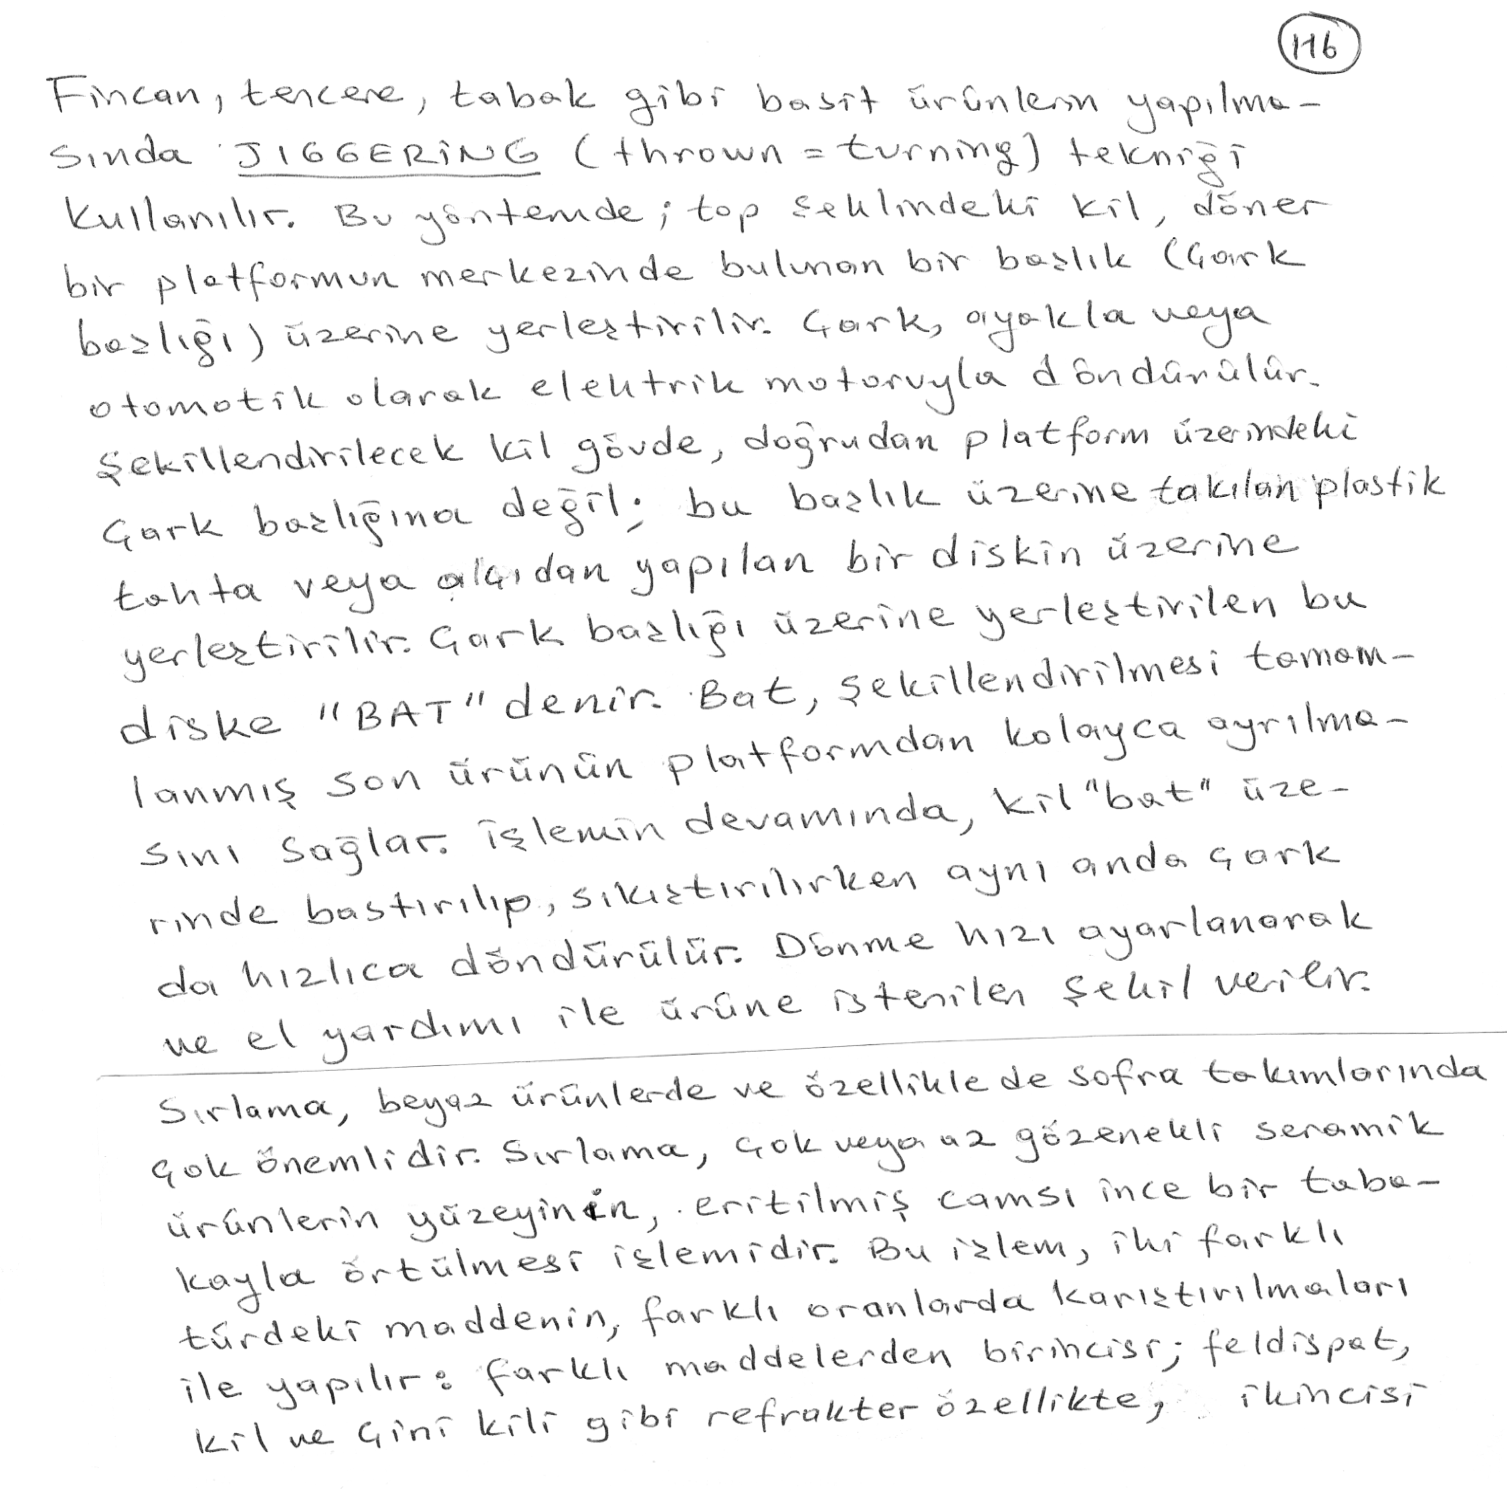 116
Fincan, tencere, tabak gibi basit ürünlerin yapılma-
sında JIGGERİNG (thrown = turning) tekniği
kullanılır. Bu yöntemde; top şeklindeki kil, döner
bir platformun merkezinde bulunan bir başlık (Çark
başlığı) üzerine yerleştirilir. Çark, ayakla veya
otomotik olarak elektrik motoruyla döndürülür.
Şekillendirilecek kil gövde, doğrudan platform üzerindeki
Çark başlığına değil; bu başlık üzerine takılan plastik
tahta veya alçıdan yapılan bir diskin üzerine
yerleştirilir. Çark başlığı üzerine yerleştirilen bu
diske "BAT" denir. Bat, şekillendirilmesi tamam-
lanmış son ürünün platformdan kolayca ayrılma-
sını sağlar. İşlemin devamında, kil "bat" üze-
rinde bastırılıp, sıkıştırılırken aynı anda çark
da hızlıca döndürülür. Dönme hızı ayarlanarak
ve el yardımı ile ürüne istenilen şekil verilir.
Sırlama, beyaz ürünlerde ve özellikle de sofra takımlarında
çok önemlidir. Sırlama, çok veya az gözenekli seramik
ürünlerin yüzeyinin, eritilmiş camsı ince bir taba-
kayla örtülmesi işlemidir. Bu işlem, iki farklı
türdeki maddenin, farklı oranlarda karıştırılmaları
ile yapılır: farklı maddelerden birincisi; feldispat,
kil ve Çini kili gibi refrakter özellikte, ikincisi